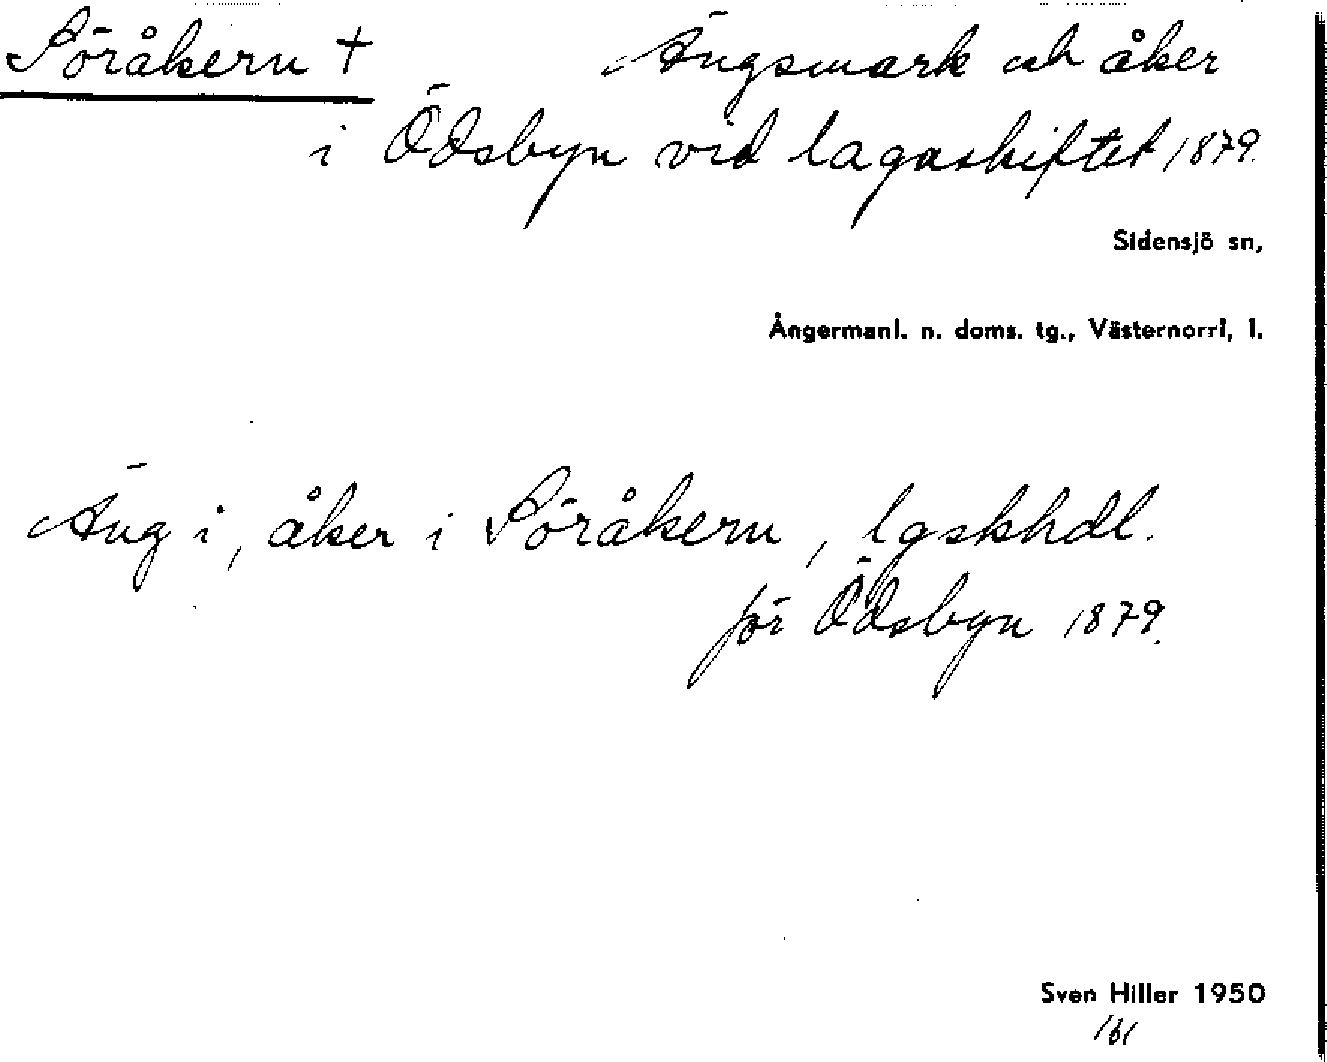 Söråkern † Ängsmark och åker
i Ödsbyn vid lagaskiftet 1879.
Sidensjö sn,
Ångermanl. n. doms. tg., Västernorrl. l.
Äng i, åker i Söråkern, lgskhdl.
för Ödsbyn 1879.
Sven Hiller 1950
161